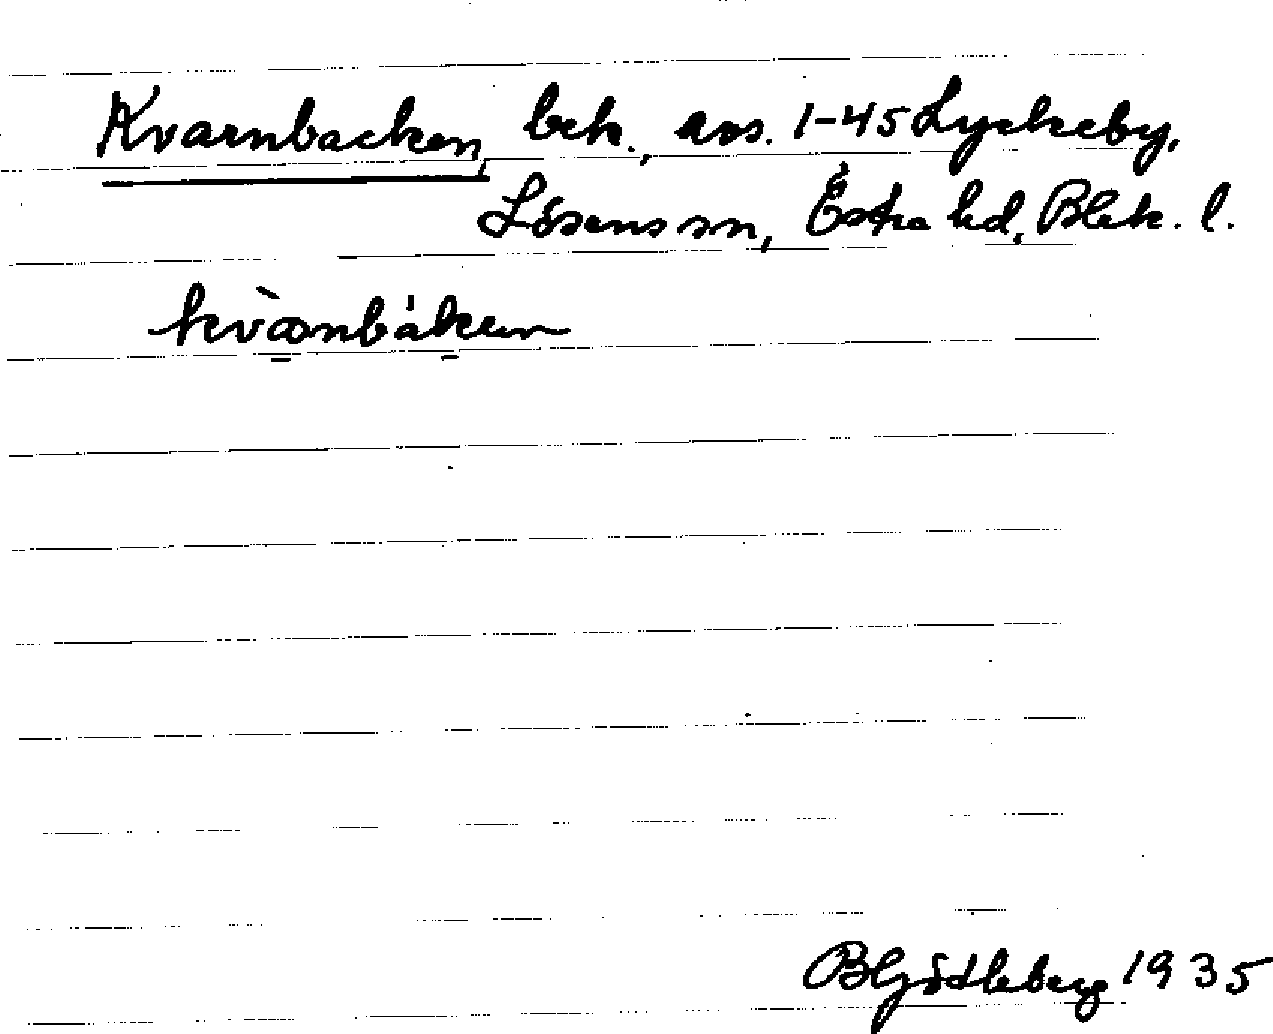 Kvarnbacken, bek., avs. 1-45 Lyckeby,
Lösens sn, Östra hd, Blek. l.
1935